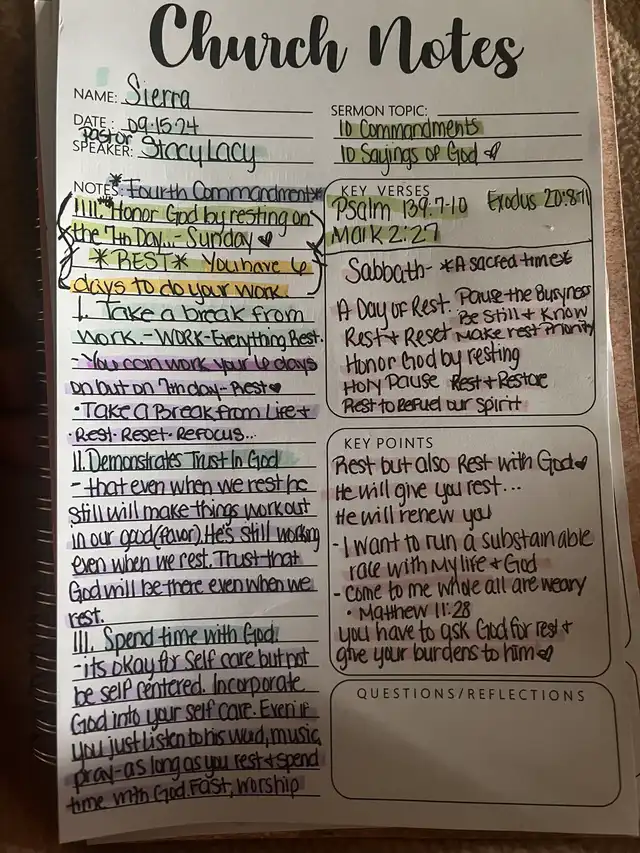 Church Notes
NAME: Sierra
DATE: 09.15.24
Pastor
SPEAKER: Stacy Lacy
SERMON TOPIC:
10 Commandments
10 Sayings of God
NOTES: *Fourth Commandment*
IIII. Honor God by resting on
the 7th Day... - Sunday
*REST* You have 6
days to do your work.
I. Take a break from
work. - WORK - Everything Rest.
- You can work your 6 days
on but on 7th day - Rest
• Take a Break from Life +
• Rest. Reset. Refocus...
II. Demonstrates Trust In God
- that even when we rest he
still will make things work out
in our good (favor). He's still working
even when we rest. Trust that
God will be there even when we
rest.
III. Spend time with God.
- its okay for Self care but not
be self centered. Incorporate
God into your self care. Even if
you just listen to his word, music,
pray - as long as you rest + spend
time with God. Fast, worship
KEY VERSES
Psalm 139:7-10 Exodus 20:8-11
Mark 2:27
Sabbath - *A sacred time*
A Day of Rest. Pause the Busyness
Be Still + Know
Rest + Reset Make rest Priority
Honor God by resting
Holy Pause Rest + Restore
Rest to Refuel our Spirit
KEY POINTS
Rest but also Rest with God
He will give you rest...
He will renew you
- I want to run a substainable
race with my life + God
- come to me whole all are weary
• Matthew 11:28
you have to ask God for rest +
give your burdens to him
QUESTIONS/REFLECTIONS